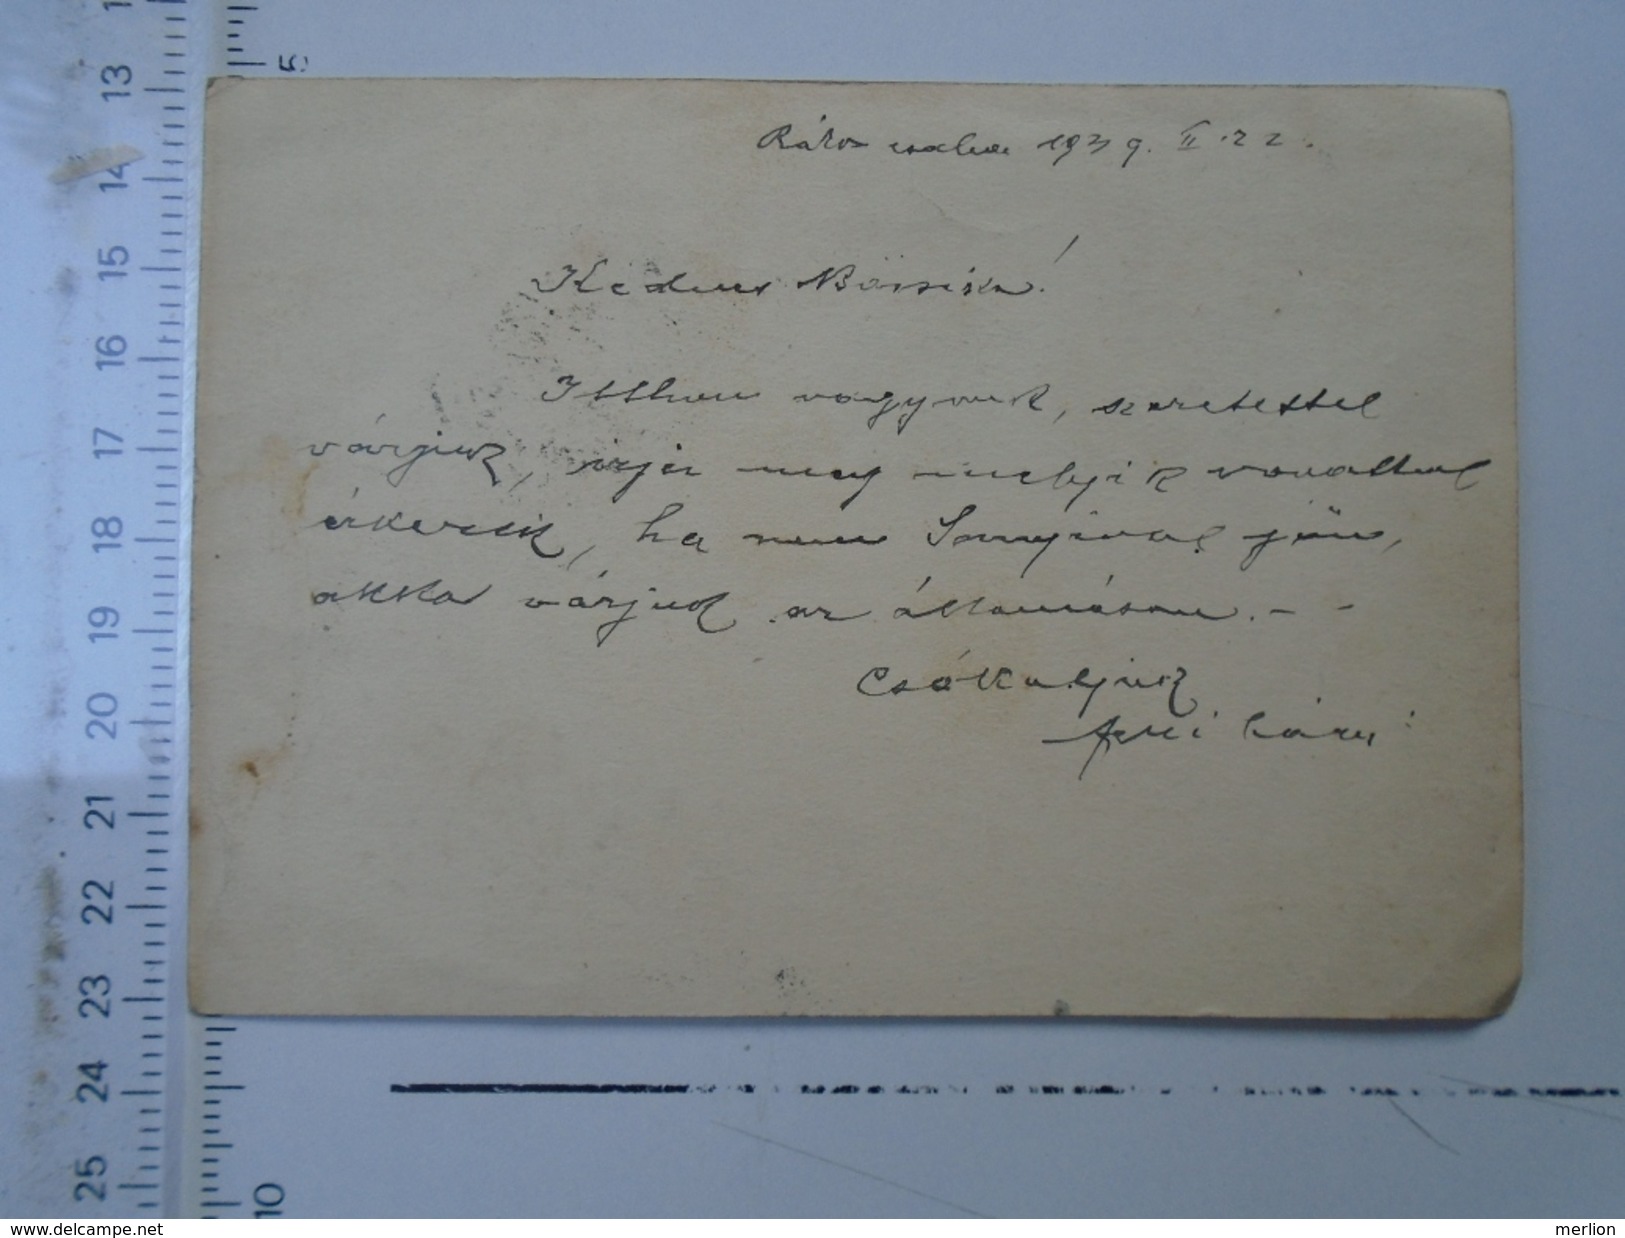 Rákoscsaba 1939. II. 22.
Kedves Bössike!
Itthon vagyunk, szeretettel
várjuk, írja meg melyik vonattal
érkezik, ha nem Sanyival jön,
akkor várjuk az állomáson. - -
Csókoljuk
13
14
15
16
17
18
19
20
21
22
23
24
25
5
10
www.delcampe.net
merlion